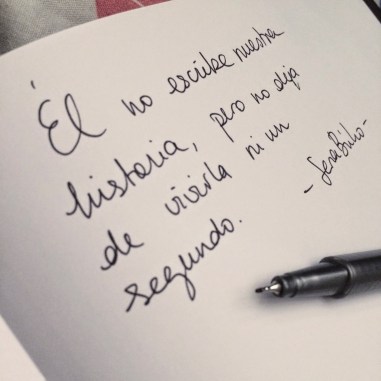 Él no escribe nuestra
historia, pero no deja
de vivirla ni un
segundo.